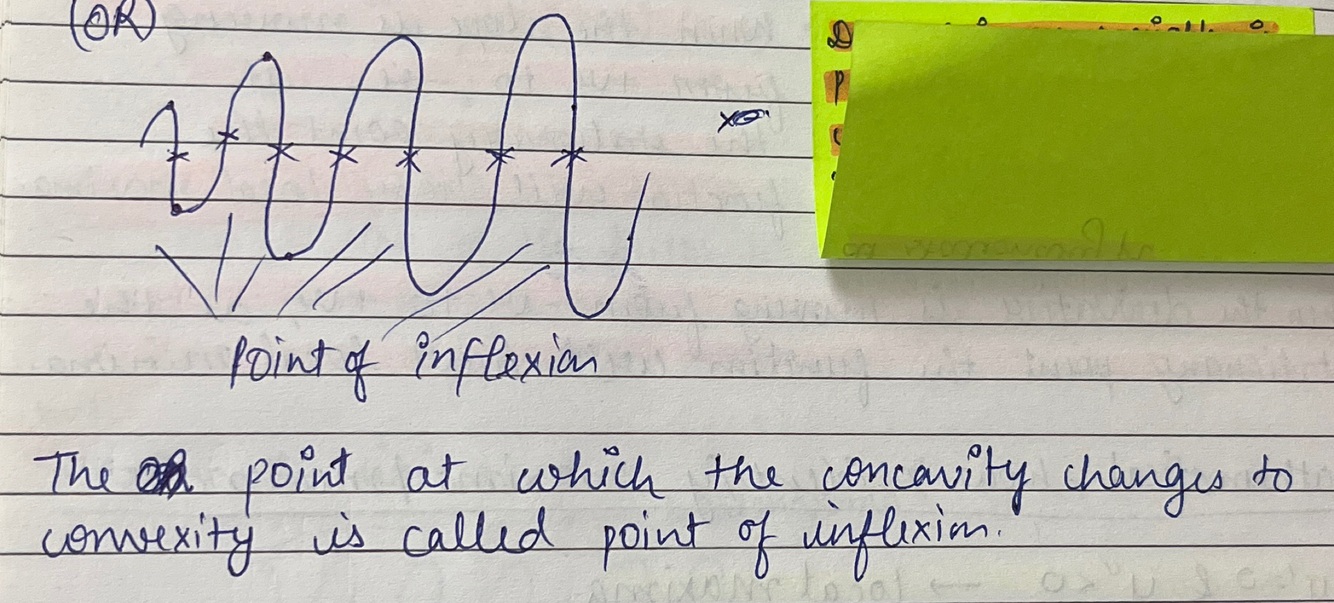 (OR)
Point of inflexion
The point at which the concavity changes to
convexity is called point of inflexion.